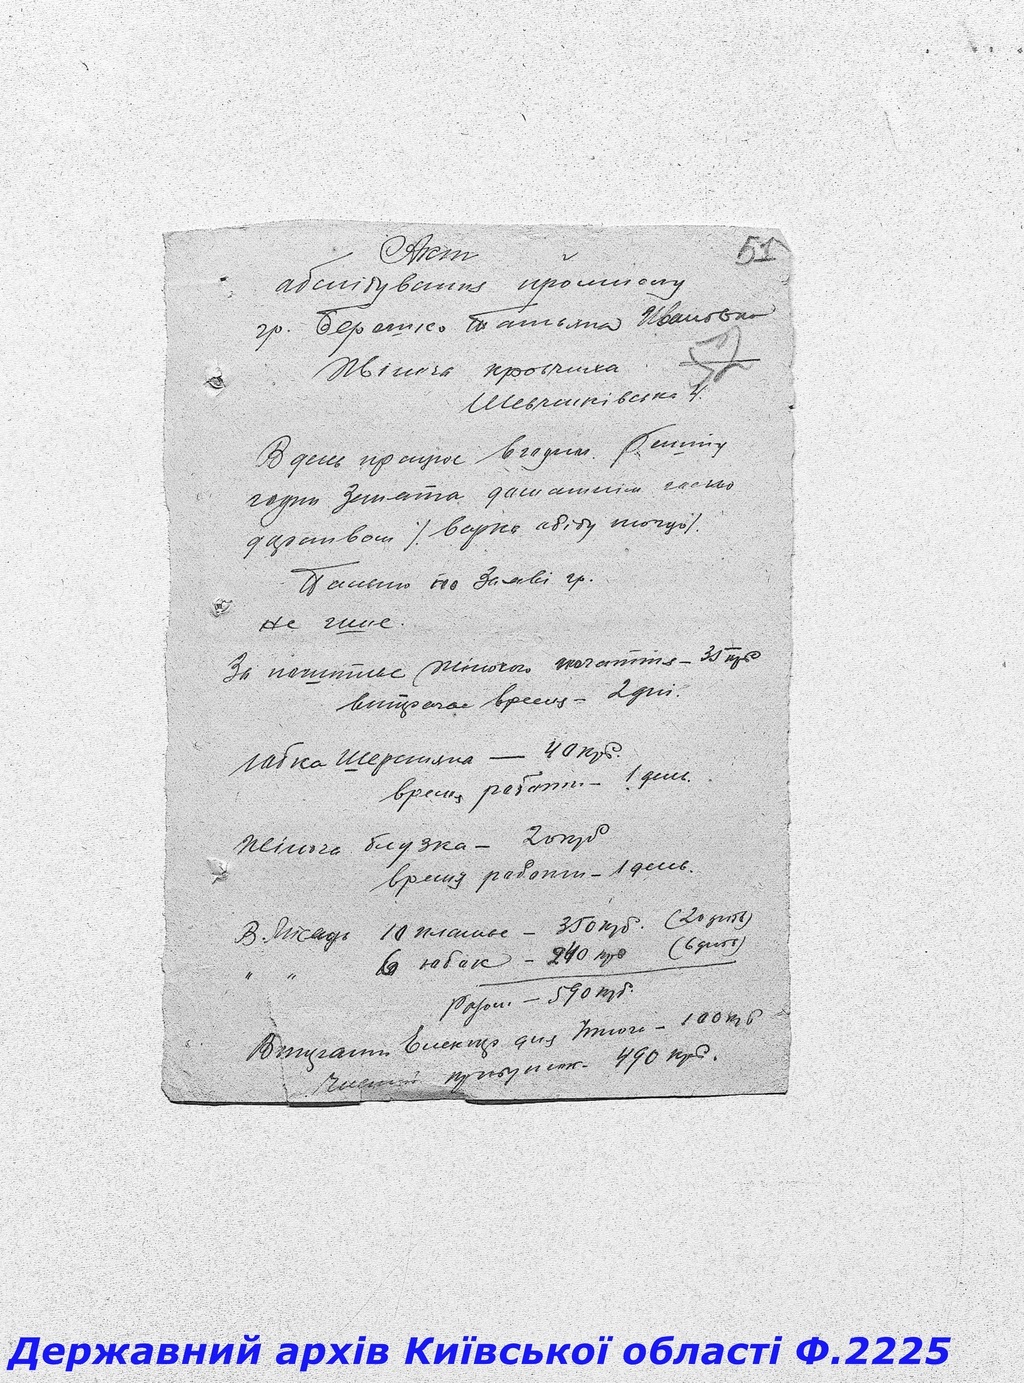 51
Акт
абслідування промислу
гр. Берашко Татьяна Ивановна
Жіноча кровчиха
Шевченківська 4.
В день працює 6 годин.
годин Занята домашнім
/ варка обіду тощо /.
Пальто по Заяві гр.
не шиє.
За пошитьє Жіночого плаття – 35 крб
витрачає время – 2 дні.
Юбка Шерстяна — 40 крб.
время работи – 1 день.
Жіноча блузка – 20 крб
время работи – 1 день.
В. Місяць 10 платьє – 350 крб. (20 днів)
" " 6 юбак – 240 крб (6 днів)
Разом – 590 крб.
Витрати – 100 крб
Чистий прибуток – 490 крб.
Державний архів Київської області Ф.2225